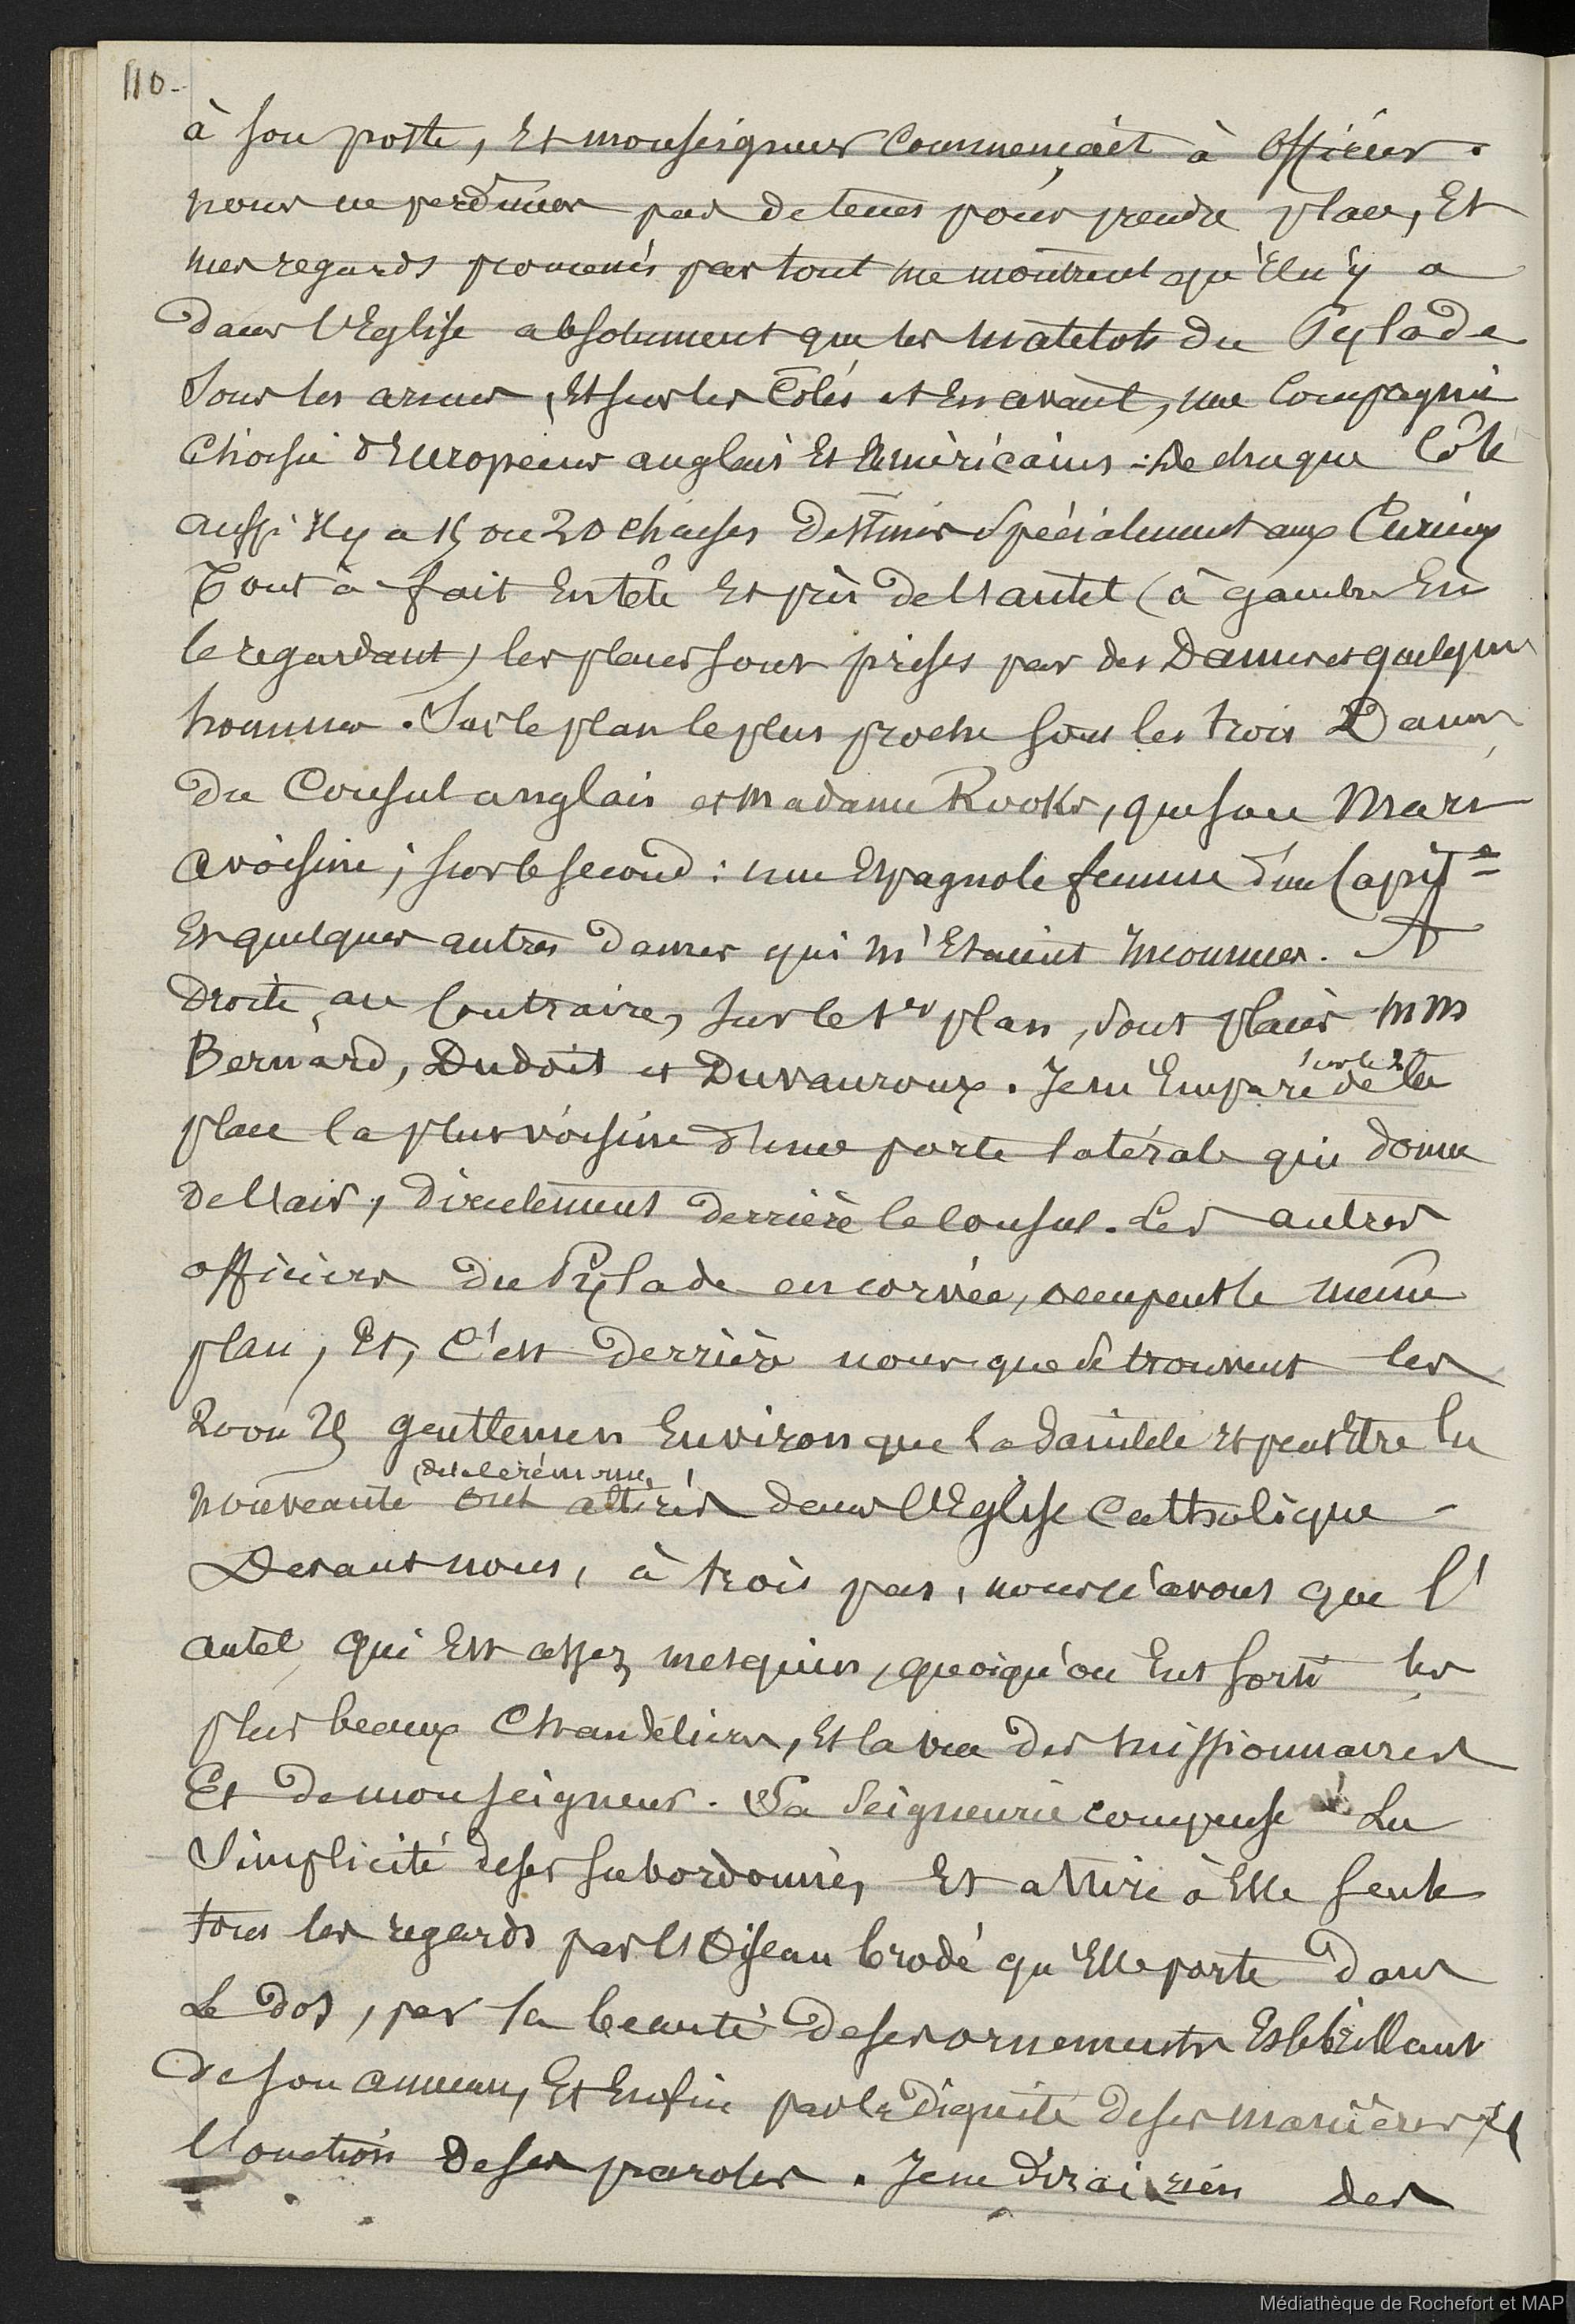 110-
à son poste, Et monseigneur Commençait à Officier.
nous ne perdîmes pas de tems pour prendre place, Et
mes regards promenés partout me montrent qu'Il n'y a
dans l'Eglise absolument que les matelots du Pylade
sous les armes, Et sur les Côtés et En avant, une Compagnie
Choisie d'Europeens anglais Et Américains : De chaque Côté
aussi Il y a 15 ou 20 Chaises destinées spécialement aux Curieux
Tout à fait En tête Et près de l'autel (à gauche En
le regardant) les places sont prises par des Dames et quelques
hommes. Sur le plan le plus proche sont les trois Dames
du Consul anglais et madame Rooks, que son Mari
avoisine ; sur le second : une Espagnole femme d'un Capit.e
Et quelques autres dames qui m'Etaient Inconnues. A
droite, au Contraire, sur le 1er plan, sont placés MM
Bernard, Dudoit et Duvauroux. Je m'Empare sur le 2e de la
place la plus voisine d'une porte latérale qui donne
de l'air, directement derrière le Consul. Les autres
officiers du Pylade en corvée, occupent le même
plan, Et, C'est derrière nous que se trouvent les
20 ou 25 gentlemen Environ que la sainteté et peut Etre la
nouveauté de la cérémonie ont attirés dans l'Eglise Catholique -
Devant nous, à trois pas, nous n'avons que l'
autel, qui Est assez mesquin, quoiqu'on Eut sorti les
plus beaux Chandeliers, Et la vue des missionnaires
Et de monseigneur. Sa Seigneurie compense La
simplicité de ses subordonnés, Et attire à Elle seule
tous les regards par l'Oiseau brodé qu'Elle porte dans
Le dos, par la beauté de ses ornements Et le brillant
de son anneau, Et Enfin par la dignité de ses manières Et
l'onction de ses paroles. Je ne dirai rien des
Médiathèque de Rochefort et MAP